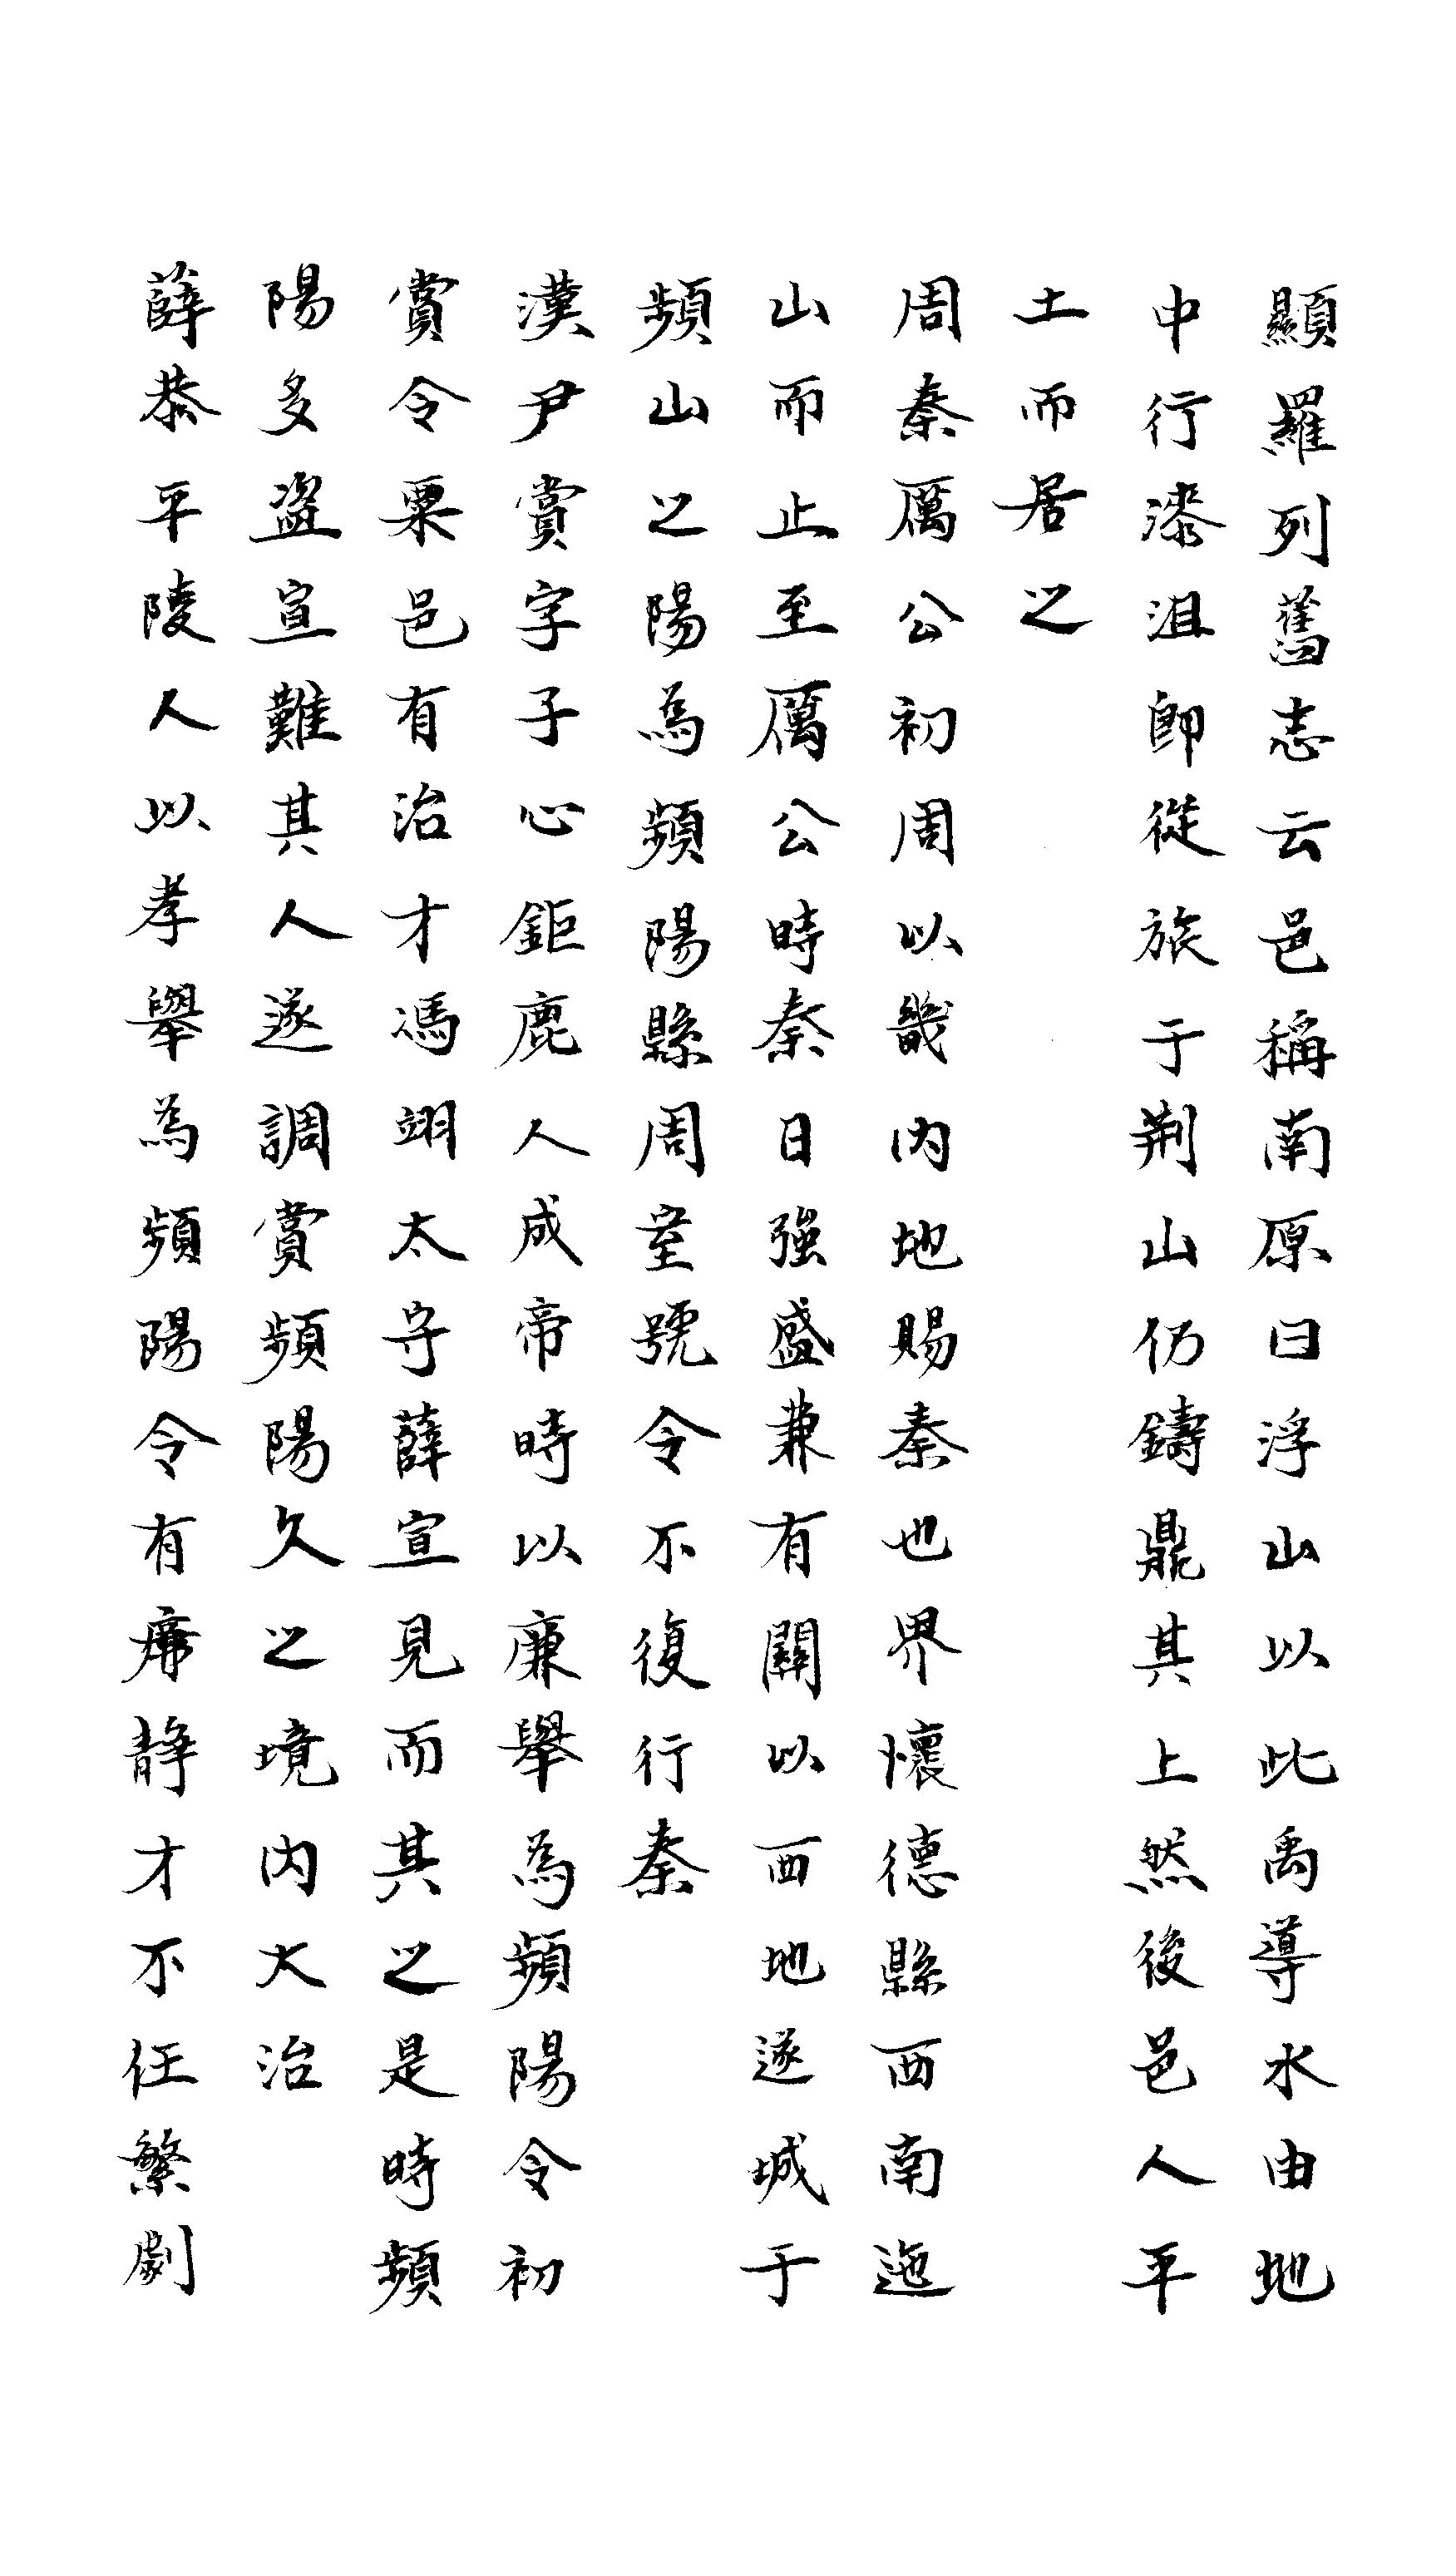 顯羅列舊志云邑稱南原曰浮山以此禹導水由地
中行漆沮即從旅于荆山仍鑄鼎其上然後邑人平
土而居之
周秦厲公初周以畿内地賜秦也界懷德縣西南迤
山而止至厲公時秦日強盛兼有關以西地遂城于
頻山之陽為頻陽縣周室號令不復行秦
漢尹賞字子心鉅鹿人成帝時以廉舉為頻陽令初
賞令栗邑有治才馮翊太守薛宣見而其之是時頻
陽多盜宣難其人遂調賞頻陽久之境内大治
薛恭平陵人以孝舉為頻陽令有席静才不任繁劇